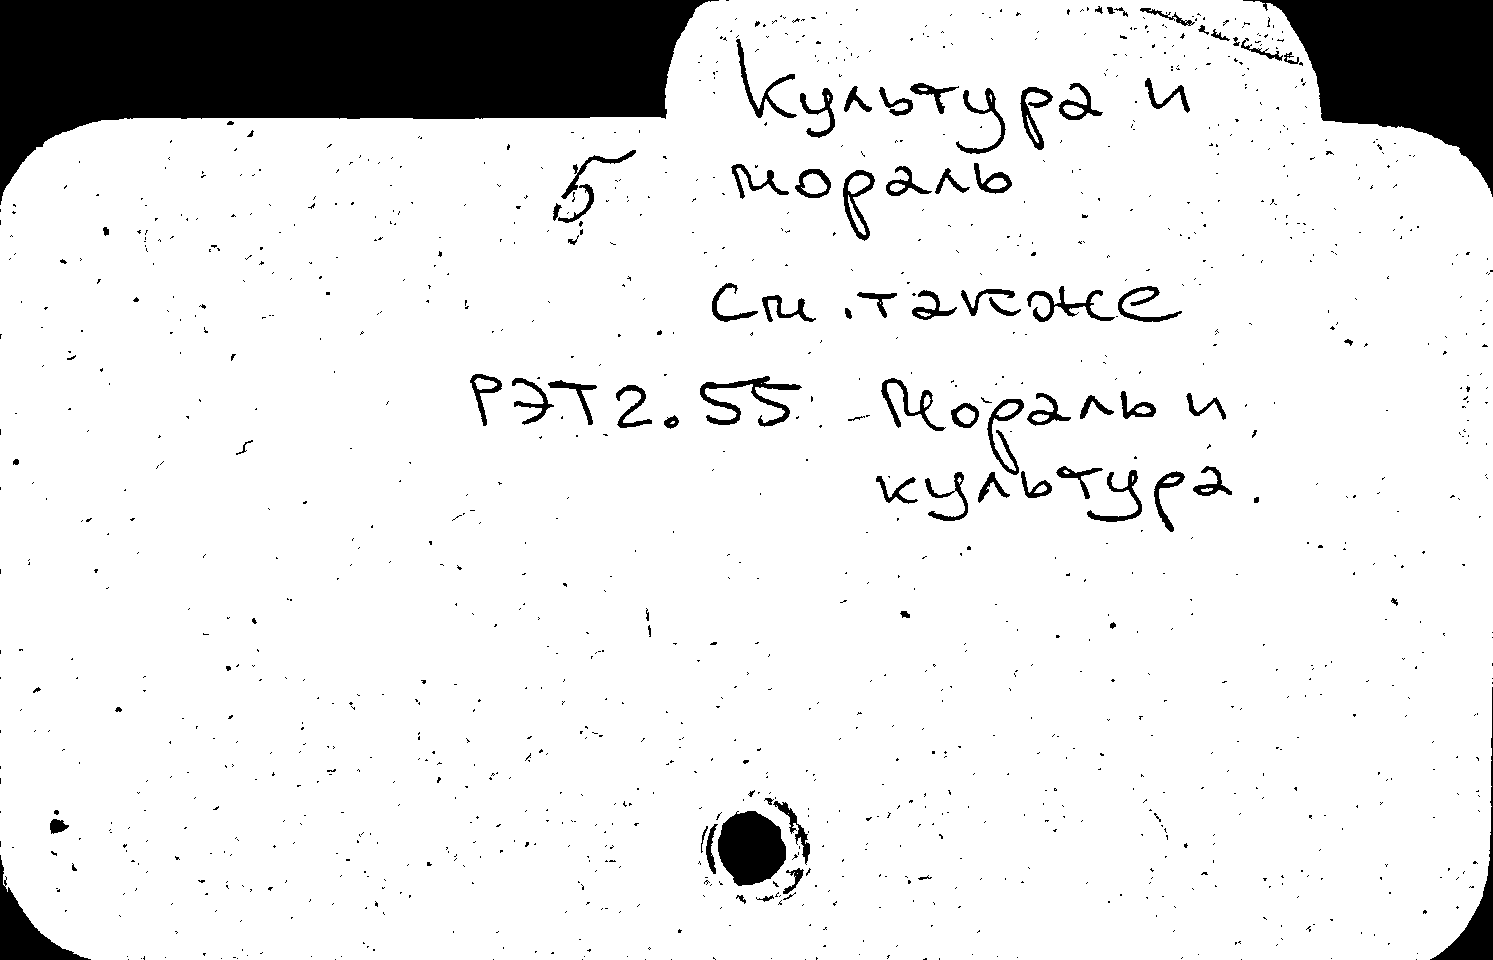 Культура и
5 мораль
См. также
РЭТ2.55 - Мораль и
культура.